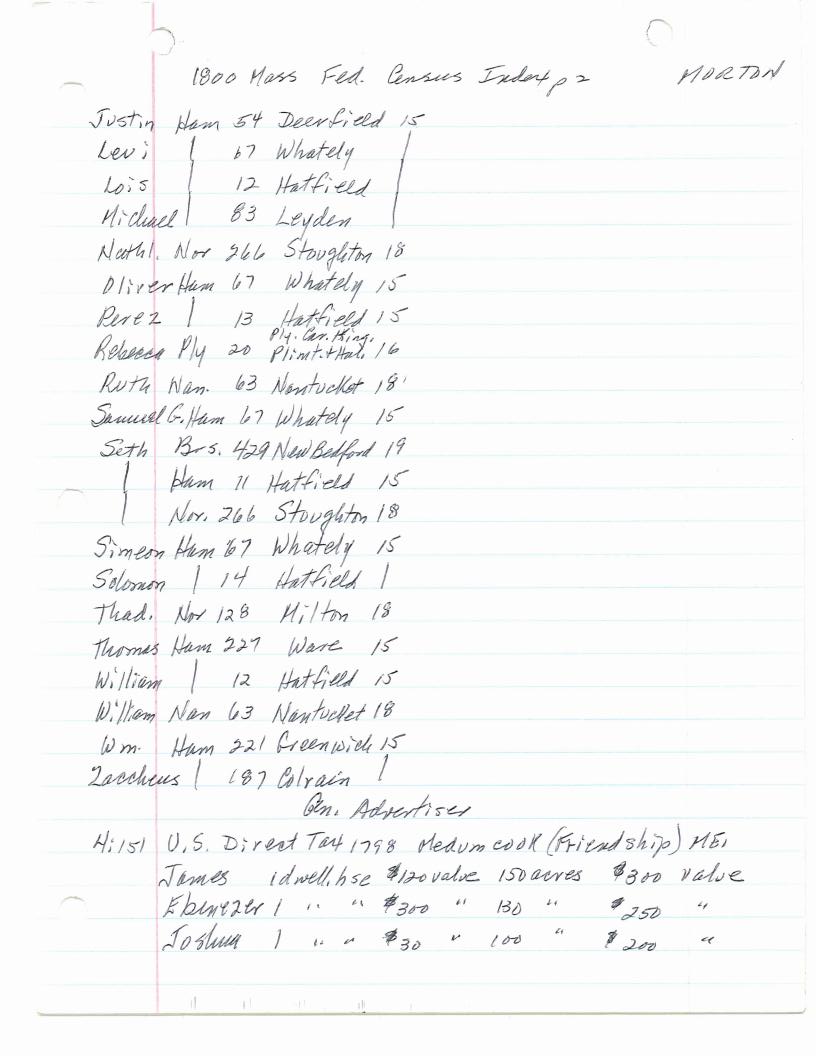 1800 Mass Fed. Census Index p 2 MORTON
Justin Ham 54 Deerfield 15
Levi | 67 Whately |
Lois | 12 Hatfield |
Michael | 83 Leyden |
Nathl. Nor 266 Stoughton 18
Oliver Ham 67 Whately 15
Perez | 13 Hatfield 15
Ply. Car. King.
Rebecca Ply 20 Plimt. + Hal. 16
Ruth Nan. 63 Nantucket 18
Samuel G. Ham 67 Whately 15
Seth Brs. 429 New Bedford 19
| Ham 11 Hatfield 15
| Nor. 266 Stoughton 18
Simeon Ham 67 Whately 15
Solomon | 14 Hatfield |
Thad. Nor 128 Milton 18
Thomas Ham 227 Ware 15
William | 12 Hatfield 15
William Nan 63 Nantucket 18
Wm. Ham 221 Greenwich 15
Zaccheus | 187 Colrain |
Gen. Advertiser
4:151 U.S. Direct Tax 1798 Medumcook (Friendship) ME.
James 1 dwell. hse $120 value 150 acres $300 value
Ebenezer 1 " " $300 " 130 " $250 "
Joshua 1 " " $30 " 100 " $200 "